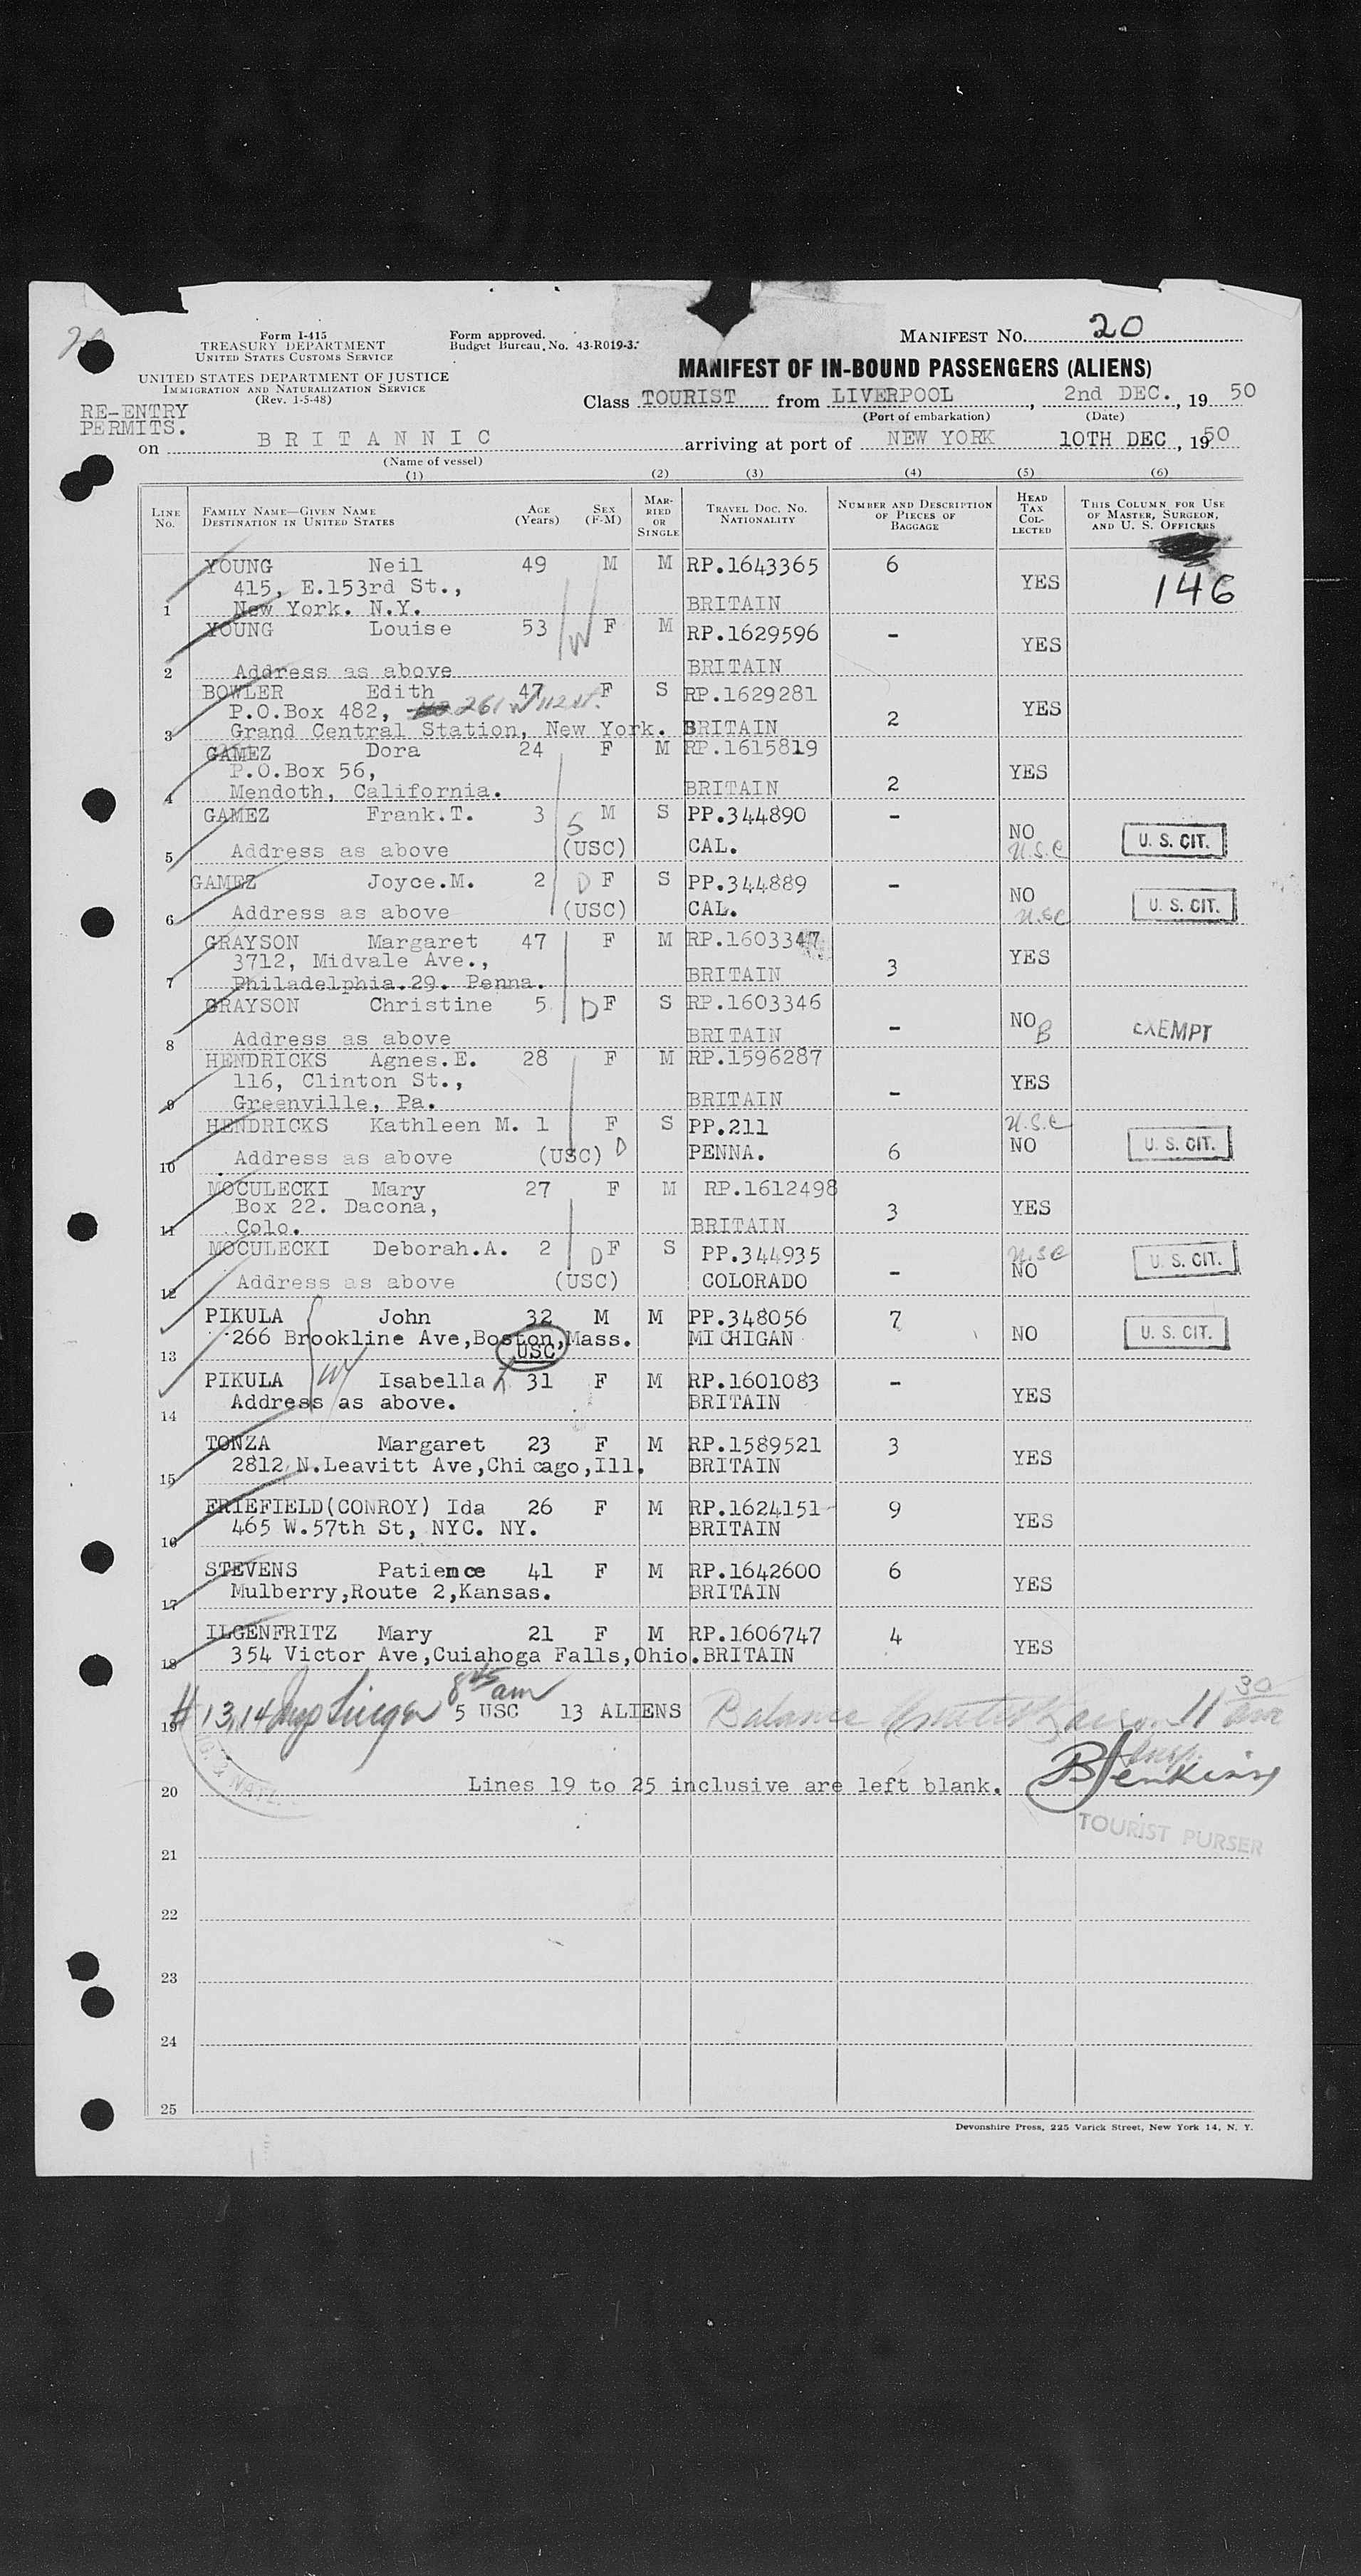 20
Form I-415
TREASURY DEPARTMENT
UNITED STATES CUSTOMS SERVICE
Form approved.
Budget Bureau, No. 43-R019-3.
MANIFEST No. 20
UNITED STATES DEPARTMENT OF JUSTICE
IMMIGRATION AND NATURALIZATION SERVICE
(Rev. 1-5-48)
MANIFEST OF IN-BOUND PASSENGERS (ALIENS)
RE-ENTRY
PERMITS.
Class TOURIST from LIVERPOOL, 2nd DEC., 19 50
(Port of embarkation) (Date)
on BRITANNIC arriving at port of NEW YORK 10TH DEC, 1950
(Name of vessel)
(1) (2) (3) (4) (5) (6)
LINE No.
FAMILY NAME—GIVEN NAME
DESTINATION IN UNITED STATES
AGE (Years)
SEX (F-M)
MARRIED OR SINGLE
TRAVEL DOC. NO. NATIONALITY
NUMBER AND DESCRIPTION OF PIECES OF BAGGAGE
HEAD TAX COLLECTED
THIS COLUMN FOR USE OF MASTER, SURGEON, AND U. S. OFFICERS
YOUNG Neil 49 M M RP.1643365 6
415, E.153rd St., YES 146
1 New York. N.Y. BRITAIN
YOUNG Louise 53 W F M RP.1629596 - YES
2 Address as above BRITAIN
BOWLER Edith 47 F S RP.1629281
P.O.Box 482, 261 W 112 st. 2 YES
3 Grand Central Station, New York. BRITAIN
GAMEZ Dora 24 F M RP.1615819
P.O.Box 56, YES
4 Mendoth, California. BRITAIN 2
GAMEZ Frank.T. 3 S M S PP.344890 - NO
5 Address as above (USC) CAL. U.S.C U. S. CIT.
GAMEZ Joyce.M. 2 D F S PP.344889 - NO
6 Address as above (USC) CAL. USC U. S. CIT.
GRAYSON Margaret 47 F M RP.1603347
3712, Midvale Ave., YES
7 Philadelphia.29. Penna. BRITAIN 3
GRAYSON Christine 5 D F S RP.1603346
NO B EXEMPT
8 Address as above BRITAIN -
HENDRICKS Agnes.E. 28 F M RP.1596287
116, Clinton St., YES
9 Greenville, Pa. BRITAIN -
HENDRICKS Kathleen M. 1 F S PP.211 U.S.C
10 Address as above (USC) D PENNA. 6 NO U. S. CIT.
MOCULECKI Mary 27 F M RP.1612498
Box 22. Dacona, 3 YES
11 Colo. BRITAIN
MOCULECKI Deborah.A. 2 D F S PP.344935 U.S.C
12 Address as above (USC) COLORADO - NO U. S. CIT.
PIKULA John 32 M M PP.348056 7
266 Brookline Ave,Boston,Mass. MICHIGAN NO U. S. CIT.
13 USC
PIKULA W Isabella 31 F M RP.1601083 -
Address as above. BRITAIN YES
14
TONZA Margaret 23 F M RP.1589521 3
15 2812 N.Leavitt Ave,Chicago,Ill. BRITAIN YES
FRIEFIELD(CONROY) Ida 26 F M RP.1624151 9
16 465 W.57th St, NYC. NY. BRITAIN YES
STEVENS Patience 41 F M RP.1642600 6
17 Mulberry,Route 2,Kansas. BRITAIN YES
ILGENFRITZ Mary 21 F M RP.1606747 4
18 354 Victor Ave,Cuiahoga Falls,Ohio. BRITAIN YES
19 # 13,14 Insp 8 45 am 5 USC 13 ALIENS Balance 11 30 am
Insp.
20 Lines 19 to 25 inclusive are left blank. BJenkins
& NATZ.
TOURIST PURSER
21
22
23
24
25
Devonshire Press, 225 Varick Street, New York 14, N. Y.